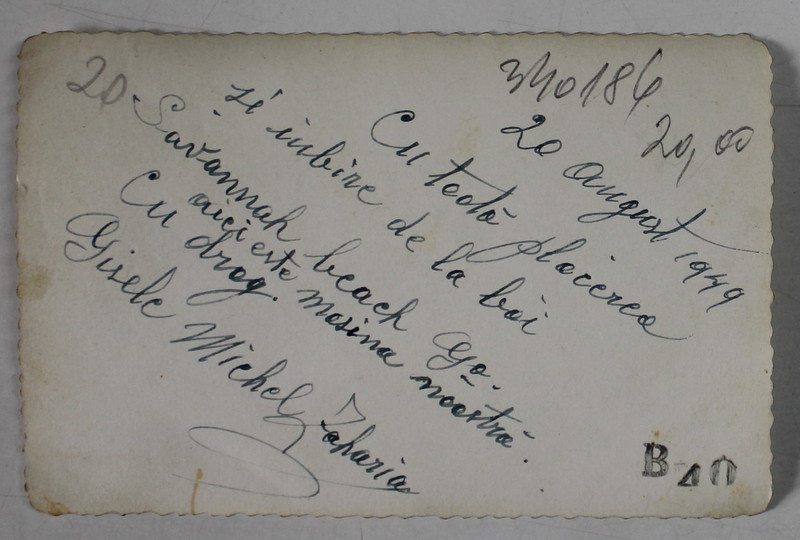 20 august 1949
20,00
Cu tootă plăcerea
și iubire de la băi
20.
Savannah beach Ga.
aici este mașina noostră.
Cu drag.
Gisele Michel Zaharia
B 40